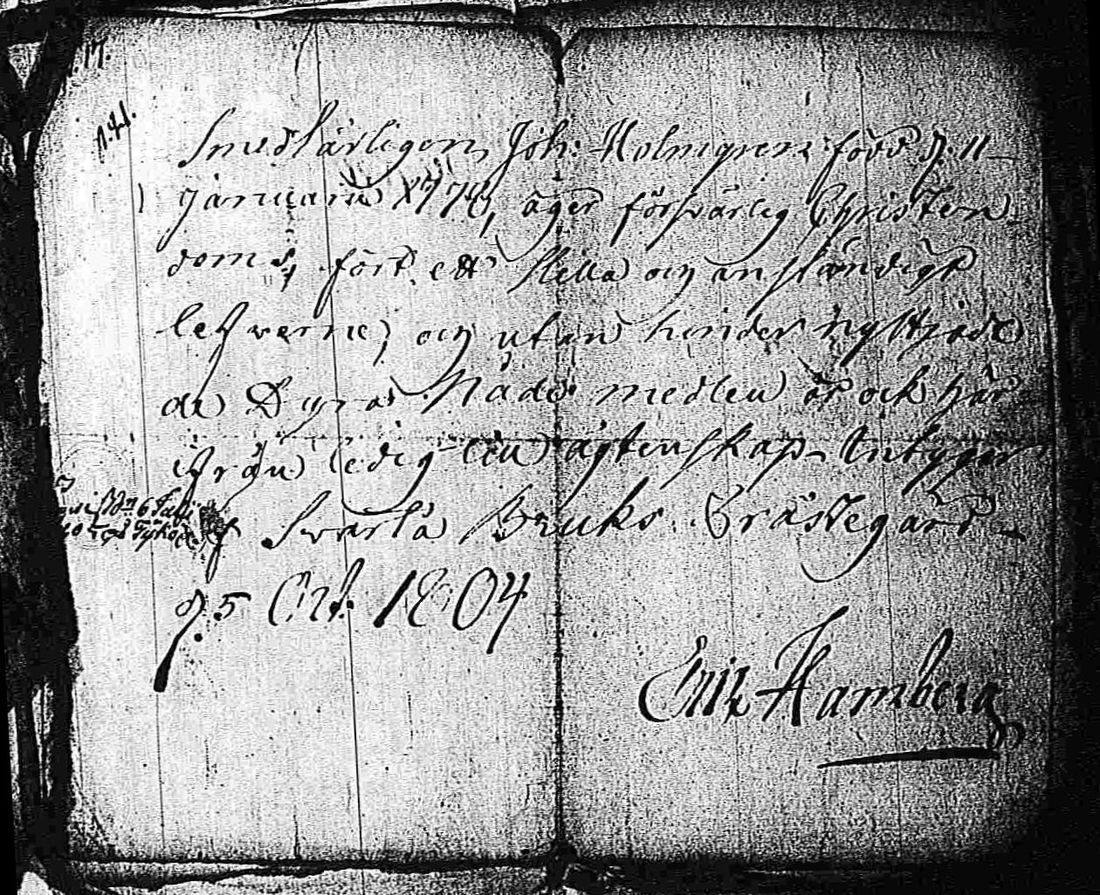 17.
n. 41.
Smedlärlingen Joh: Holmgren född d. 11
januarii 1778, äger försvarlig Christen-
dom, fört ett stilla och anständigt
lefverne, och utan hinder nyttjade
de Dyra Nådes medlen är ock här
ifrån ledig till ägtenskap. Intygar
Svarta Bruks Prästegård
d. 5 Oct. 1804
Eric Hamberg